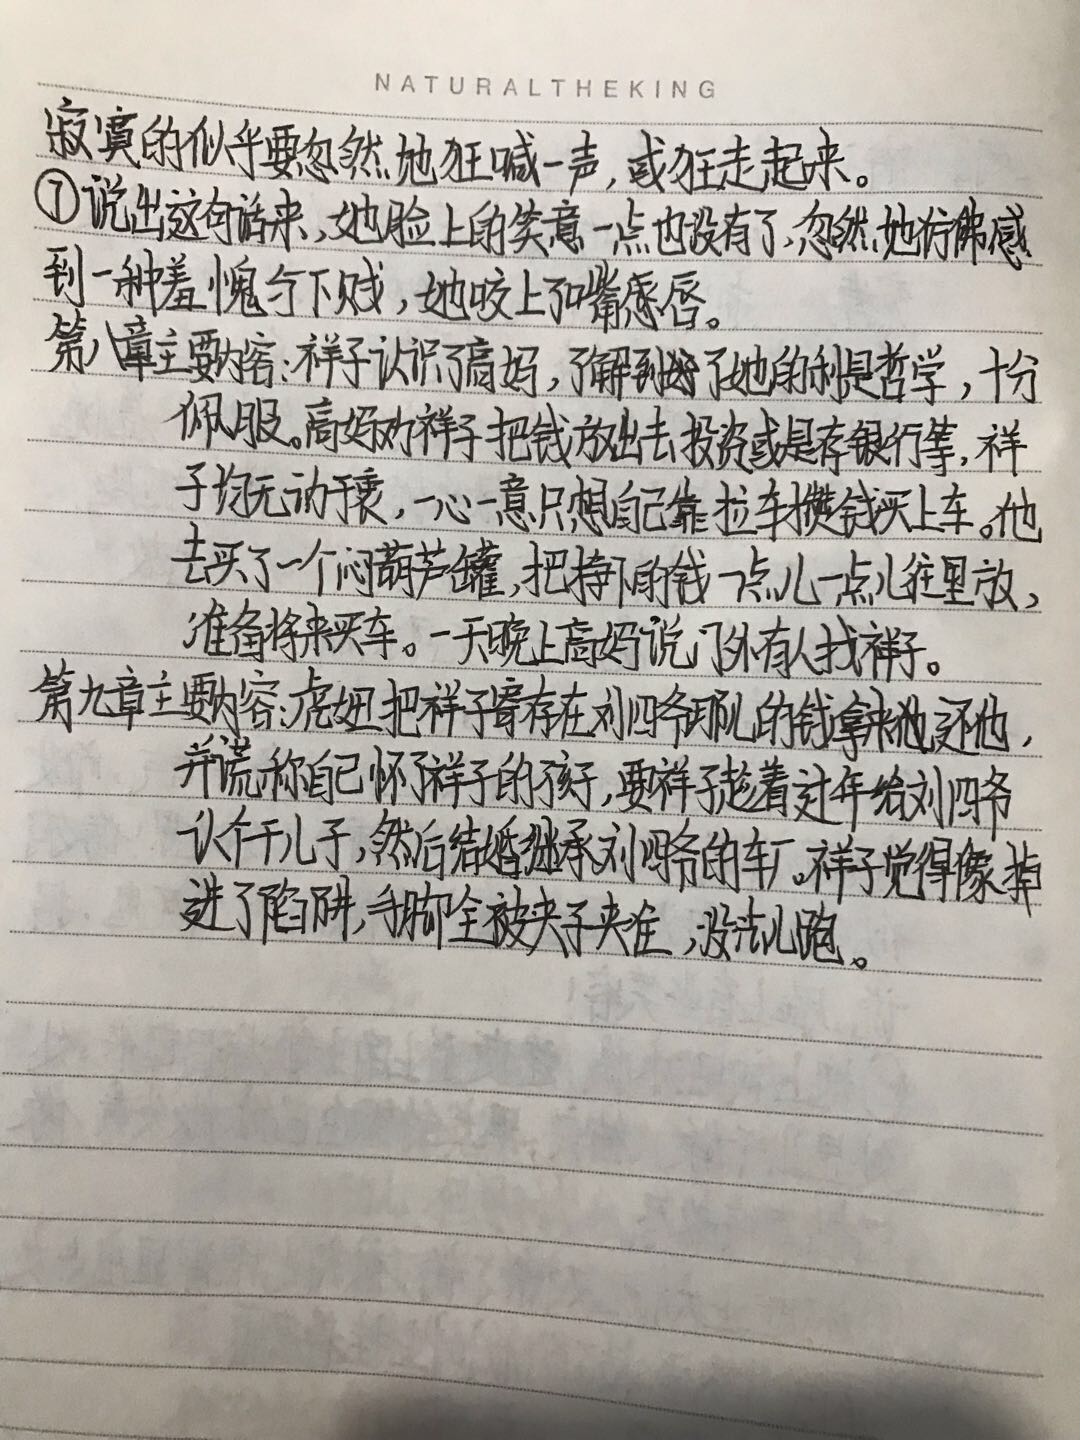 NATURALTHEKING
寂寞的似乎要忽然地狂喊一声，或狂走起来。
⑦说出这句话来，她脸上的笑意一点也没有了，忽然她仿佛感
到一种羞愧与下贱，她咬上了嘴唇。
第八章主要内容：祥子认识了高妈，了解到了她的利是哲学，十分
佩服。高妈劝祥子把钱放出去投资或是存银行等，祥
子均无动于衷，一心一意只想自己靠拉车攒钱买上车。他
去买了一个闷葫芦罐，把挣下的钱一点儿一点儿往里放，
准备将来买车。一天晚上高妈说门外有人找祥子。
第九章主要内容：虎妞把祥子寄存在刘四爷那儿的钱拿来地还他，
并谎称自己怀了祥子的孩子，要祥子趁着过年给刘四爷
认个干儿子，然后结婚继承刘四爷的车厂。祥子觉得像掉
进了陷阱，手脚全被夹子夹住，没法儿跑。